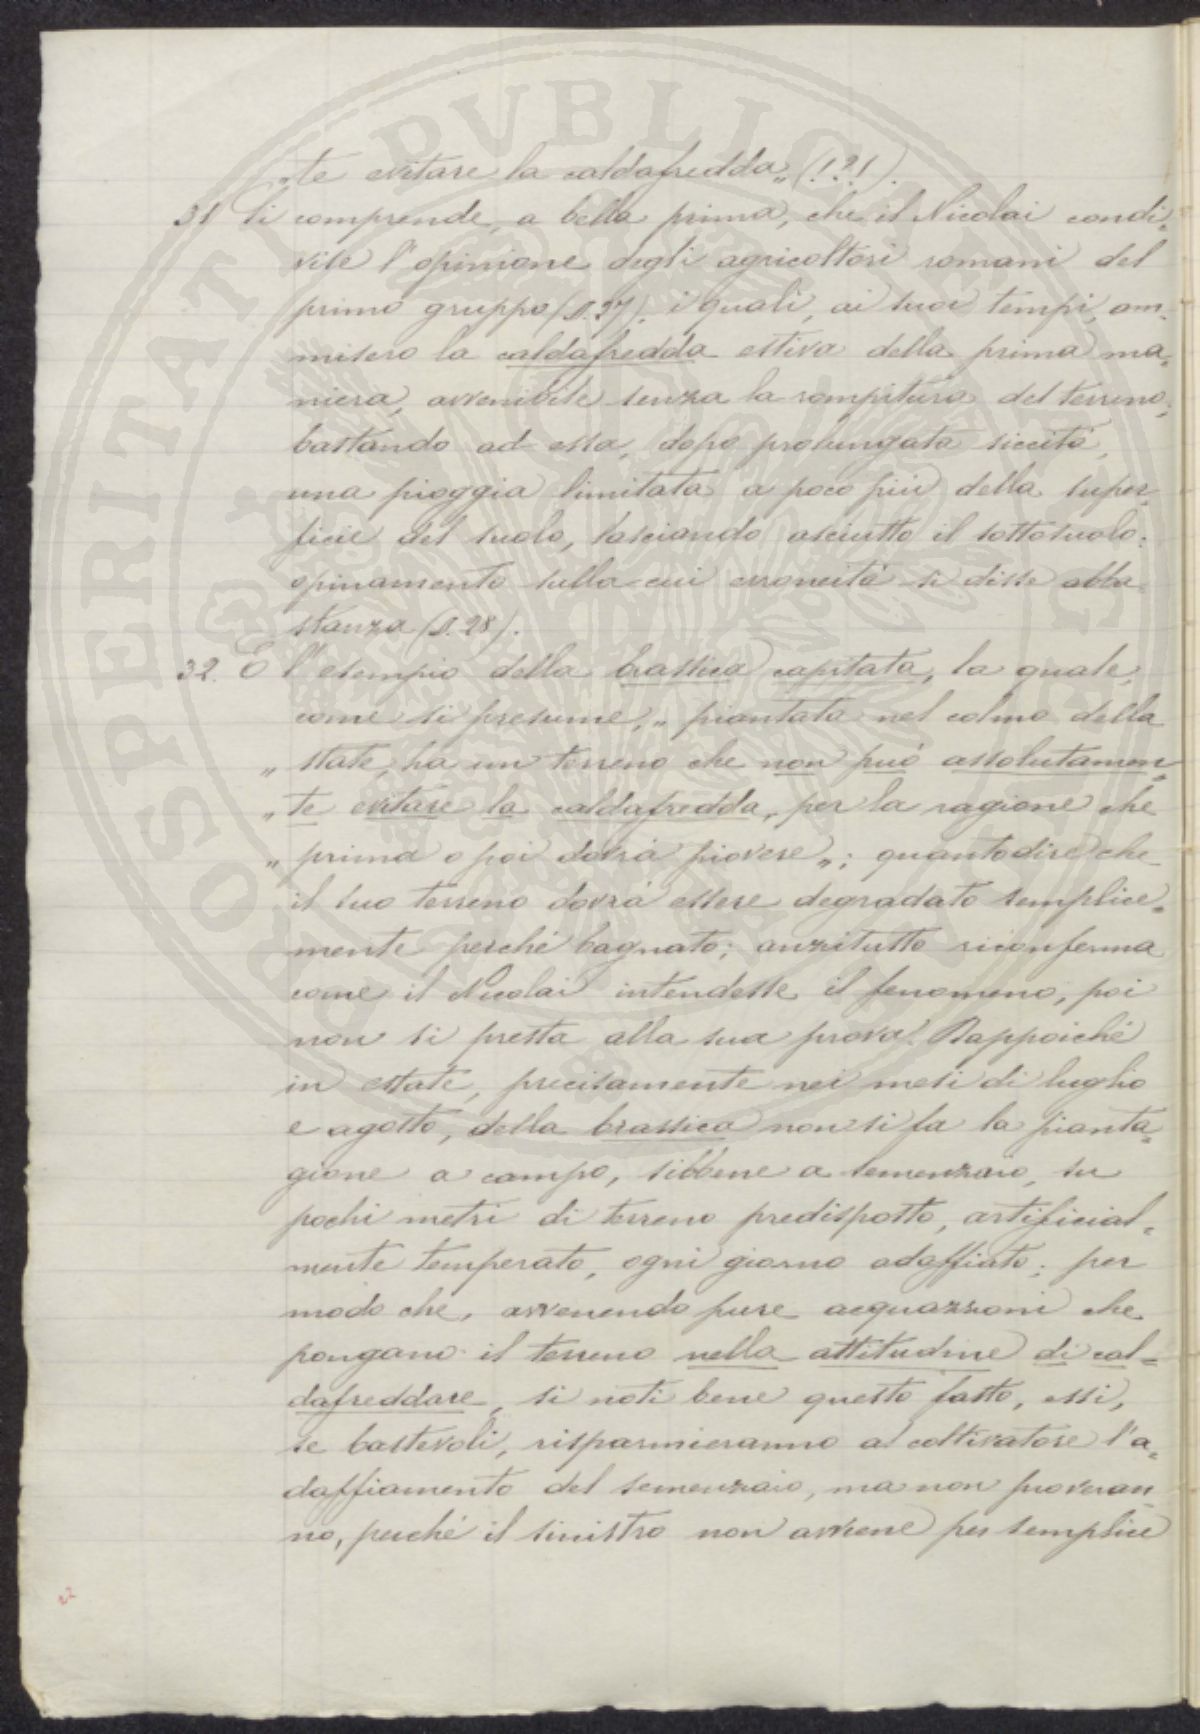 „te evitare la caldafredda„ (!?!).
31 Si comprende, a bella prima, che il Nicolai condi-
vise l'opinione degli agricoltori romani del
primo gruppo (N. 27). i quali, ai suoi tempi, am-
misero la caldafredda estiva della prima ma-
niera, avvenibile senza la rompitura del terreno;
bastando ad essa, dopo prolungata siccità,
una pioggia limitata a poco più della super-
ficie del suolo, lasciando asciutto il sottosuolo:
opinamento sulla cui erroneità si disse abba-
stanza (N. 28).
32. E l'esempio della brassica capitata, la quale,
come si presume, „ piantata nel colmo della
„ state, ha un terreno che non può assolutamen-
„ te evitare la caldafredda, per la ragione che
„ prima o poi dovrà piovere„; quantodire che
il suo terreno dovrà essere degradato semplice-
mente perché bagnato; anzitutto riconferma
come il Nicolai intendesse il fenomeno, poi
non si presta alla sua prova. Dappoiché
in estate, precisamente nei mesi di luglio
e agosto, della brassica non si fa la pianta-
gione a campo, sibbene a semenzaio, su
pochi metri di terreno predisposto, artificial-
mente temperato, ogni giorno adaffiato; per
modo che, avvenendo pure acquazzoni che
pongano il terreno nella attitudine di cal-
dafreddare, si noti bene questo fatto, essi,
se bastevoli, risparmieranno al coltivatore l'a-
daffiamento del semenzaio, ma non proveran-
no, perché il sinistro non avviene per semplice
22
PVBLICAE
PROSPERITATI